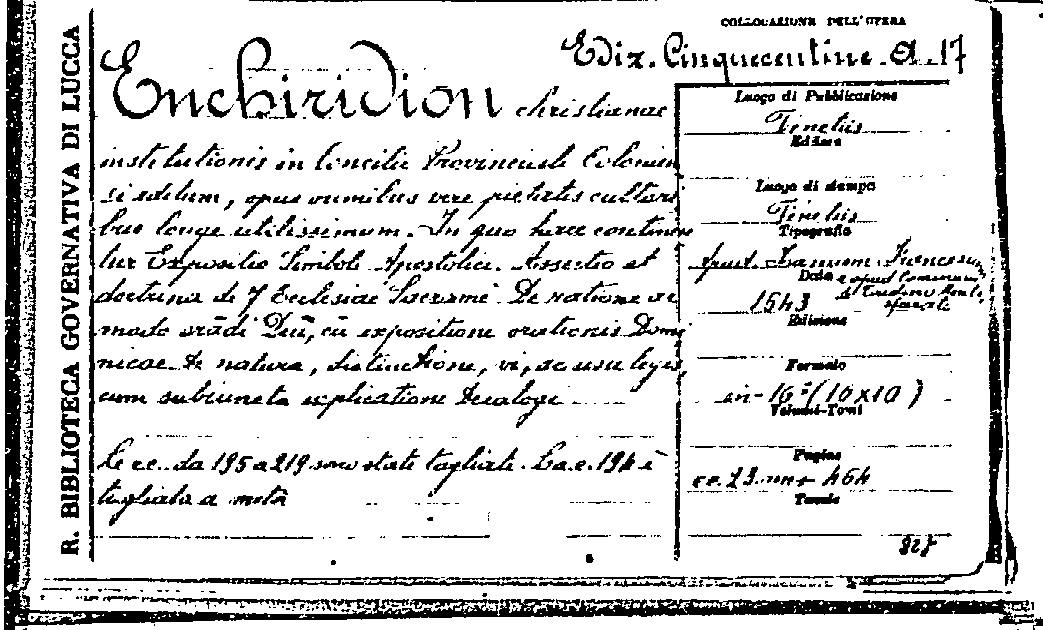 R. BIBLIOTECA GOVERNATIVA DI LUCCA
COLLOCAZIONE DELL'OPERA
Ediz. Cinquecentine. A. 17
Enchiridion christianae
institutionis in Concilio Provinciali Colonien
si editum, opus omnibus vere pietatis cultori
bus longe utilissimum. In quo haec continen
tur Expositio Simboli Apostolici. Assertio et
doctrina de 7 Ecclesiae Sacramē. De ratione ac
modo orādi Deū, cū expositione orationis Domi
nicae De natura, distinctione, vi, ac usu legis,
cum subiuncta explicatione Decalogi
Le cc. da 195 a 219 sono state tagliate. La c. 194 è
tagliata a metà
Luogo di Pubblicazione
Venetiis
Editore
Luogo di stampa
Venetiis
Tipografia
Apud Ioannem Francesium
Data
e apud Cominum
de Tridino Mont.
1543
Edizione
Formato
in-16° (10x10)
Volumi-Tomi
Pagine
cc. 23 nn + 464
Tavole
927